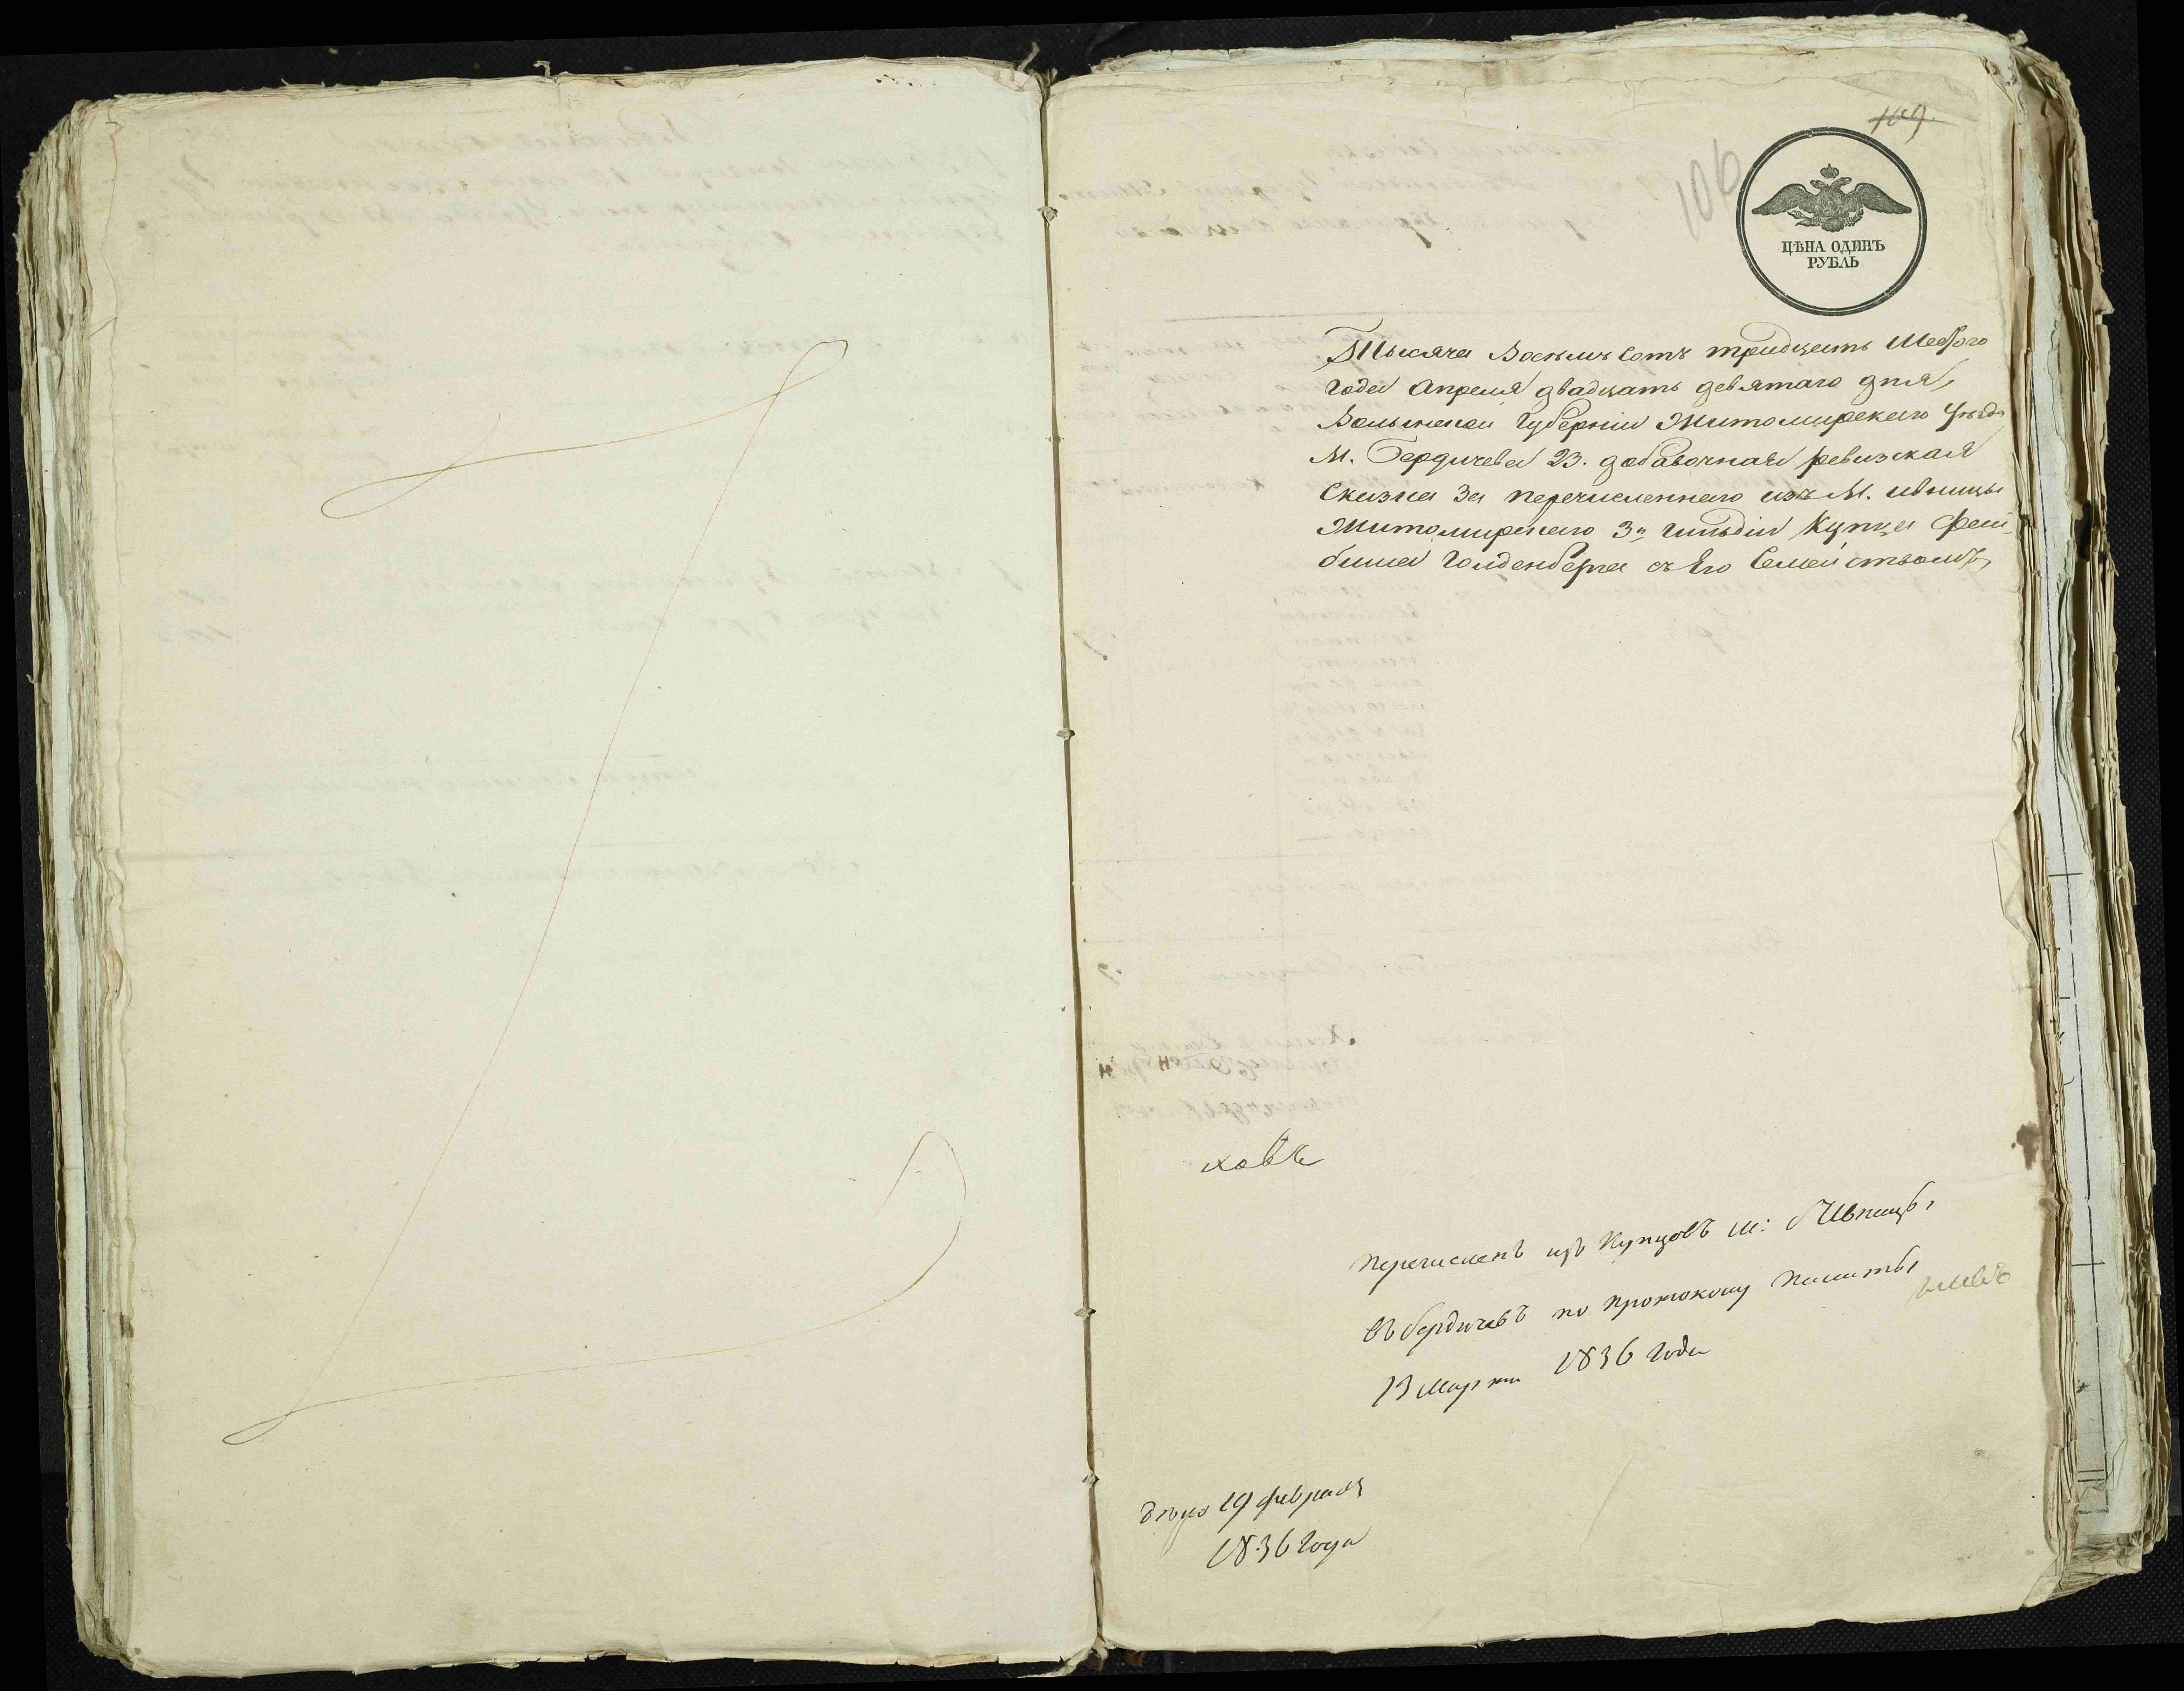 109.
106
ЦѢНА ОДИНЪ
РУБЛЬ
Тысяча Восемь Сотъ тридцать Шестого
Года Апреля двадцать девятаго дня,
Волынской Губерніи Житомирскаго уѣзда
М. Бердичева 23. добавочная ревизская
Сказка За перечисленнаго изъ М. ивницы
Житомирскаго 3й гильдіи Купца Фай-
биша Голденберга съ Его Семействомъ,
ховъ
перечисленъ изъ Купцовъ м: Ивницы
въ бердичевъ по протоколу палаты
13 марта 1836 года
19 февраля
1836 года